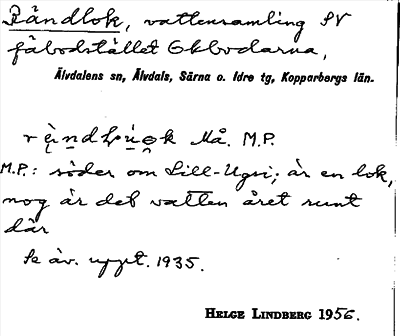 Rändlok, vattensamling SV
fäbodstället Ekbodarna,
Älvdalens sn, Älvdals, Särna o. Idre tg, Kopparbergs län.
Må. M.P.
M.P.: söder om Lill-Ugsi; är en lok,
nog är det vatten året runt
där
Se äv. uppt. 1935.
HELGE LINDBERG 1956.